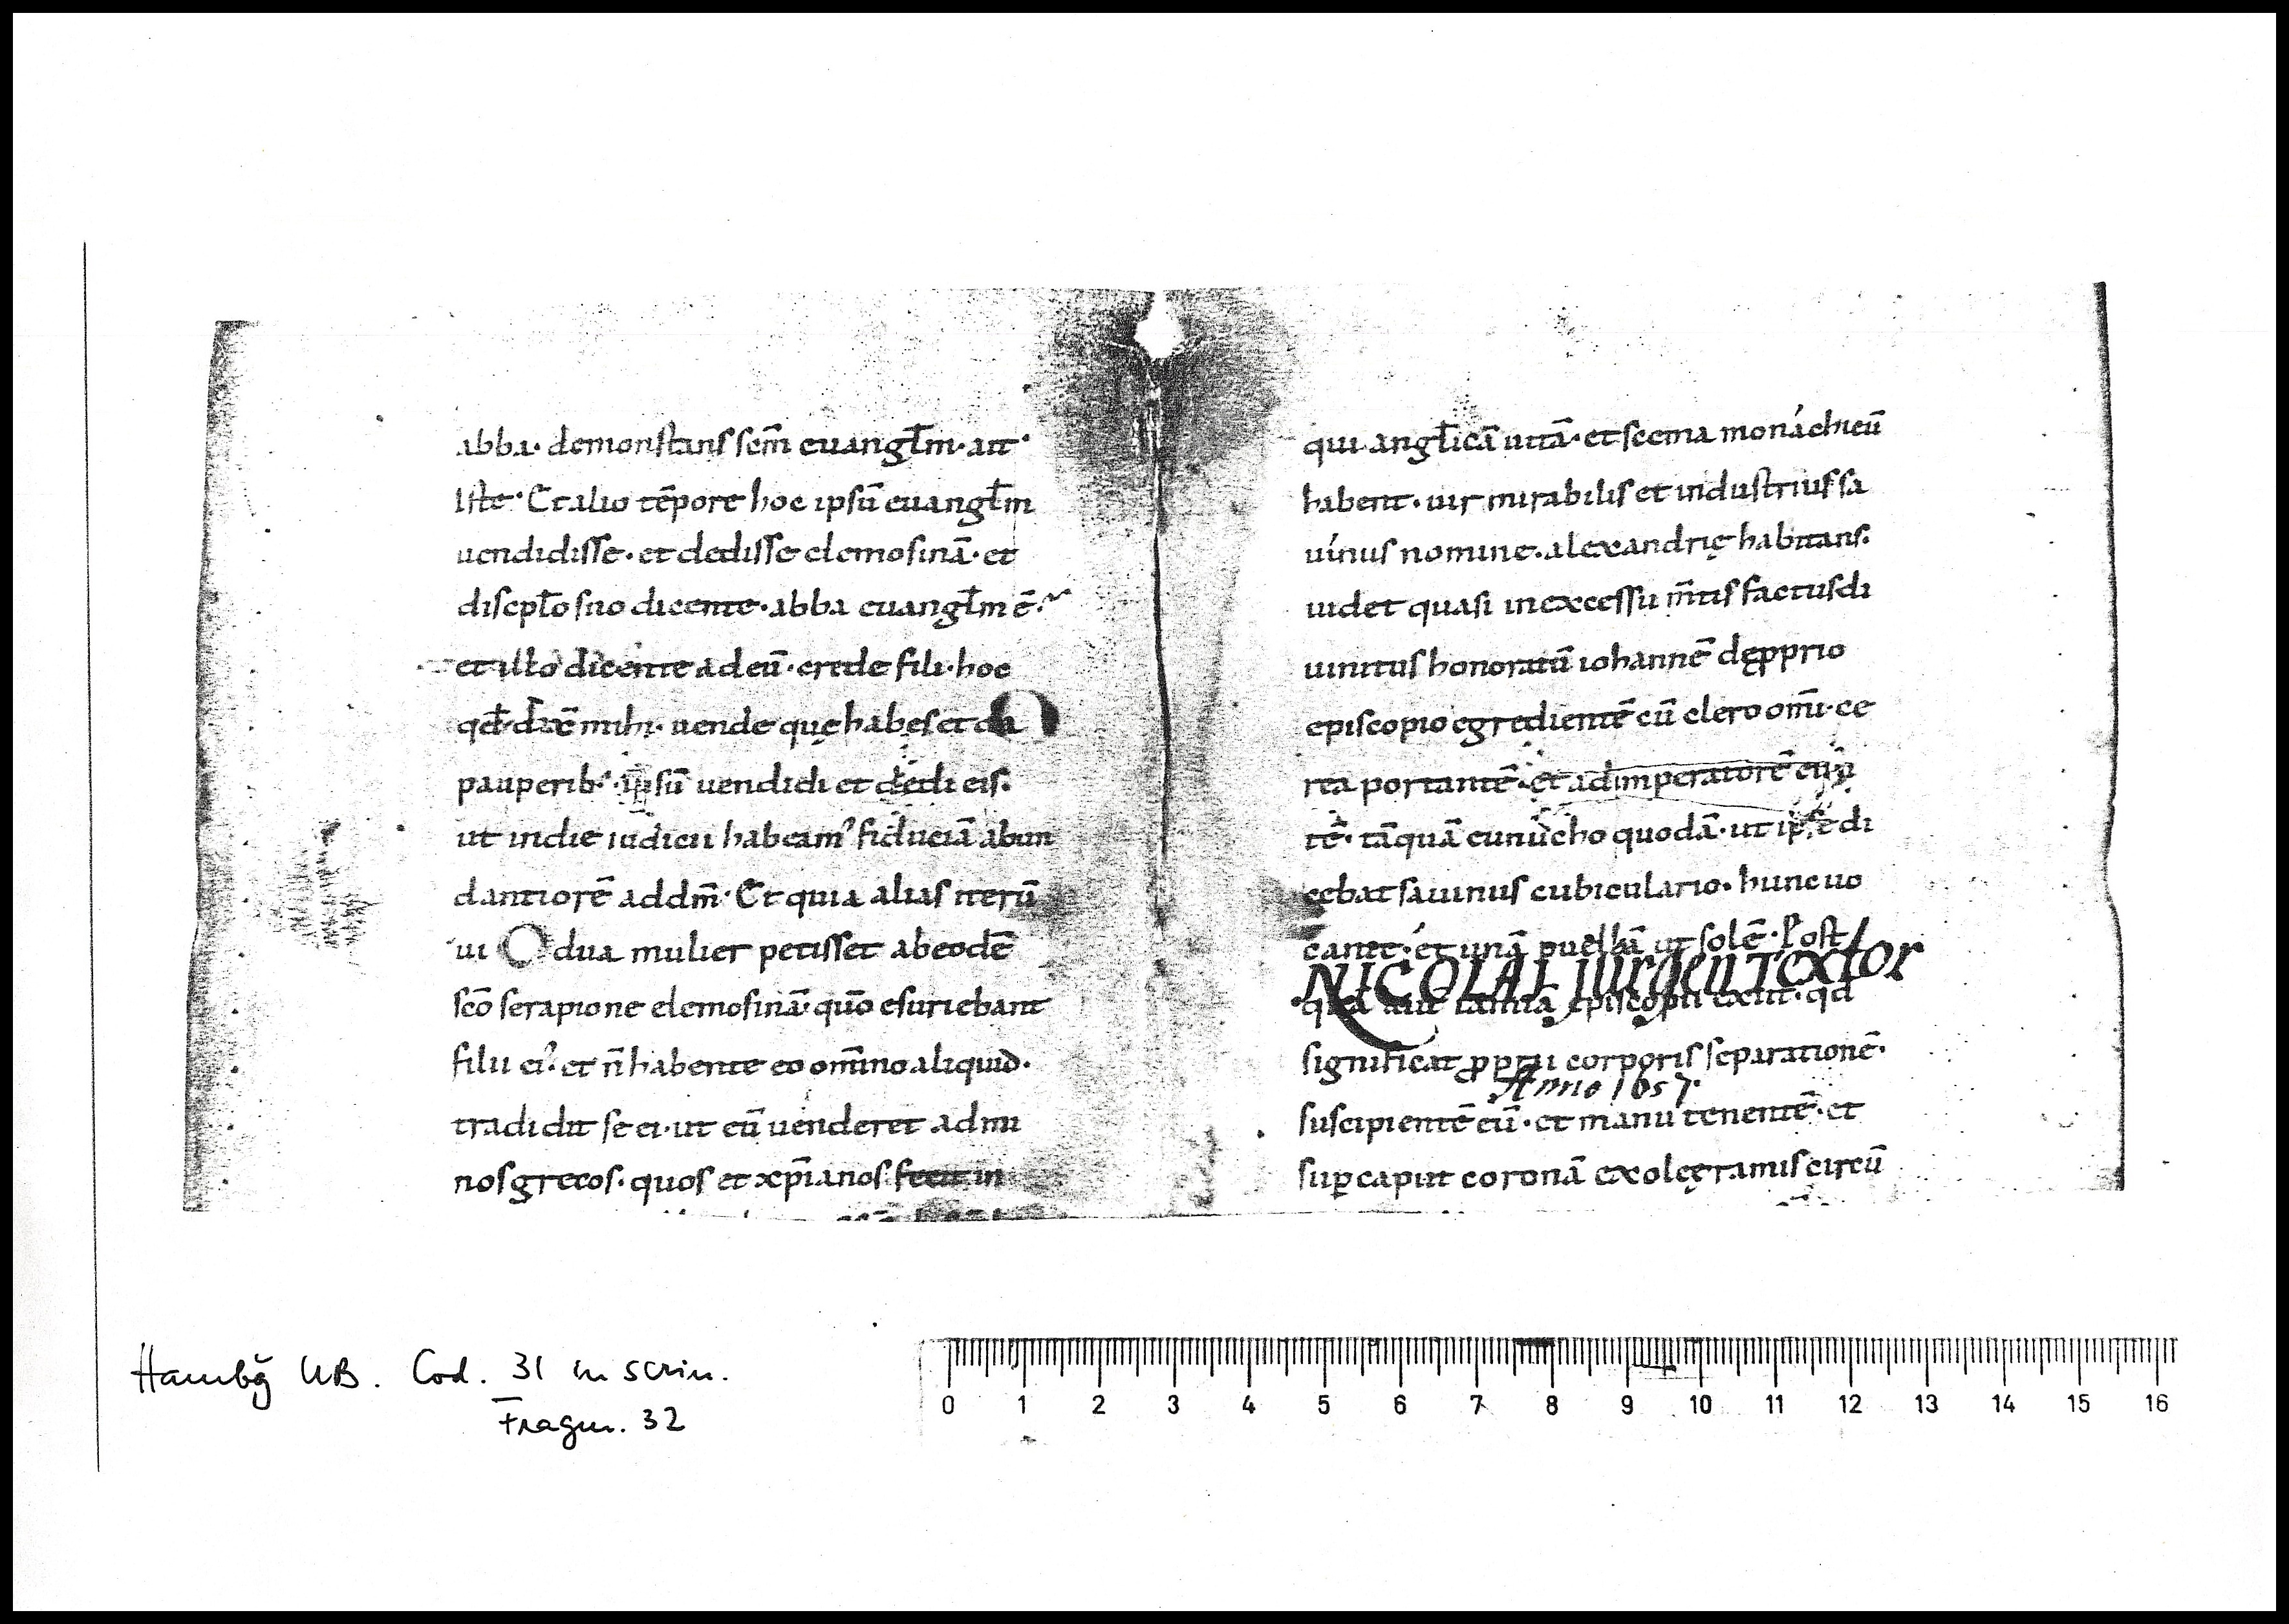 abba· demonstrans scm̄ euangl̄m· ait·
Iste· Et alio tēpore hoc ipsū euangl̄m
uendidisse· et dedisse elemosinā· et
discipl̄o suo dicente· abba euangl̄m ē·
et illo dicente ad eū· crede fili· hoc
qđ dix̄ mihi· uende quę habes et da
pauperib; ipsū uendidi et dedi eis·
ut in die iudicii habeam' fiduciā abun
dantiorē ad dm̄· Et quia alias iterū
ui O dua mulier petisset ab eodē
scō serapione elemosinā· quō esuriebant
filii ei'· et n̄ habente eo om̄ino aliquid·
tradidit se ei· ut eū uenderet ad mi
nos grecos· quos et xp̄ianos fecit in
qui angl̄icā uitā· et scema monáchicū
habent· uir mirabilis et industrius sa
uínus nomine· alexandrię habitans·
uidet quasi in excessu m̄tis factus di
uinitus honoratū iohannē dę pprio
episcopio egredientē cū clero om̄i· ce
rea portantē· et ad imperatorē
tē· tāquā eunucho quodā· ut ipse di
cebat sauinus cubiculario· hunc uo
cante· et unā puellā ut solē· Post
NICOLAI Jurgen Textor
episcopii exiit· qđ
significat pprii corporis separationē·
Anno 1657
suscipientē eū· et manu tenentē· et
sup caput coronā ex olęę ramis circū
Hambg UB. Cod. 31 in scrin.
Fragm. 32
0 1 2 3 4 5 6 7 8 9 10 11 12 13 14 15 16